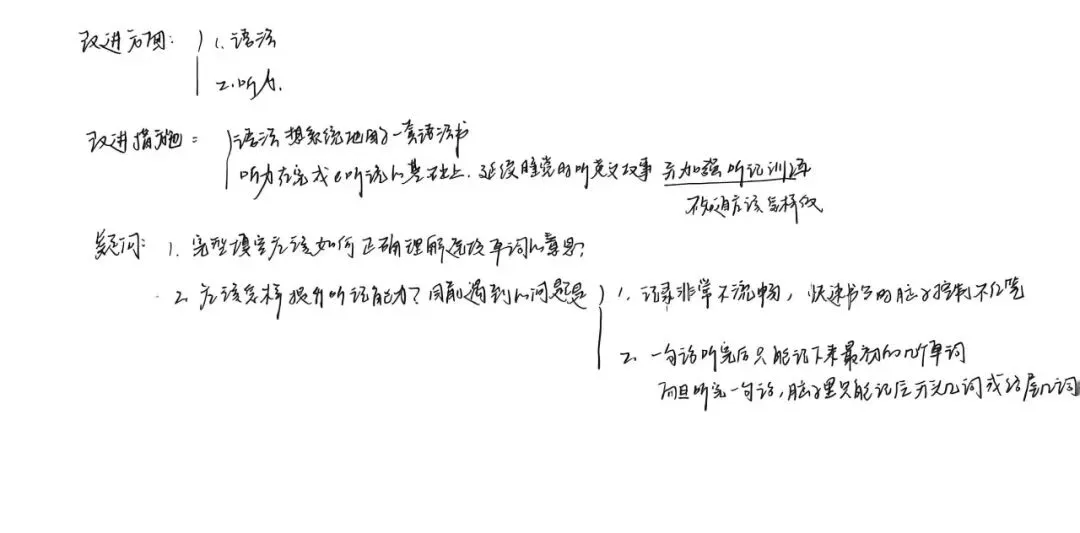 改进方面: 1. 语法
2. 听力.
改进措施: 语法想系统地用了一套语法书
听力在完成e听说的基础上,延续睡觉时听英文故事 并加强听记训练
不知道应该怎样做
疑问: 1. 完型填空应该如何正确理解选项单词的意思?
2. 应该怎样提升听记能力?目前遇到的问题是 1. 记录非常不流畅, 快速书写时脑子控制不住笔
2. 一句话听完后只能记下来最初的几个单词
而且听完一句话,脑子里只能记住开头几词或结尾几词